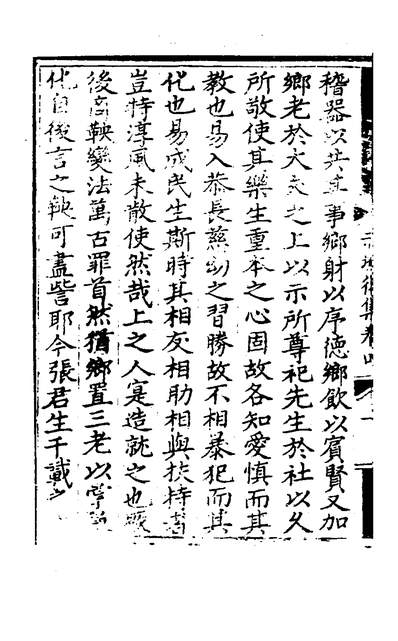 稽器以共其事鄉射以序德鄉飲以賓賢又加
鄉老於大夫之上以示所尊祀先生於社以久
所敬使其樂生重本之心固故各知愛慎而其
教也易入恭長慈幼之習勝故不相暴犯而其
化也易成民生斯時其相友相助相與扶持者
豈特淳風未散使然哉上之人寔造就之也厥
後商鞅變法萬古罪首然猶鄉置三老以掌
化自後言之鞅可盡訾耶今張君生千載之
集卷四